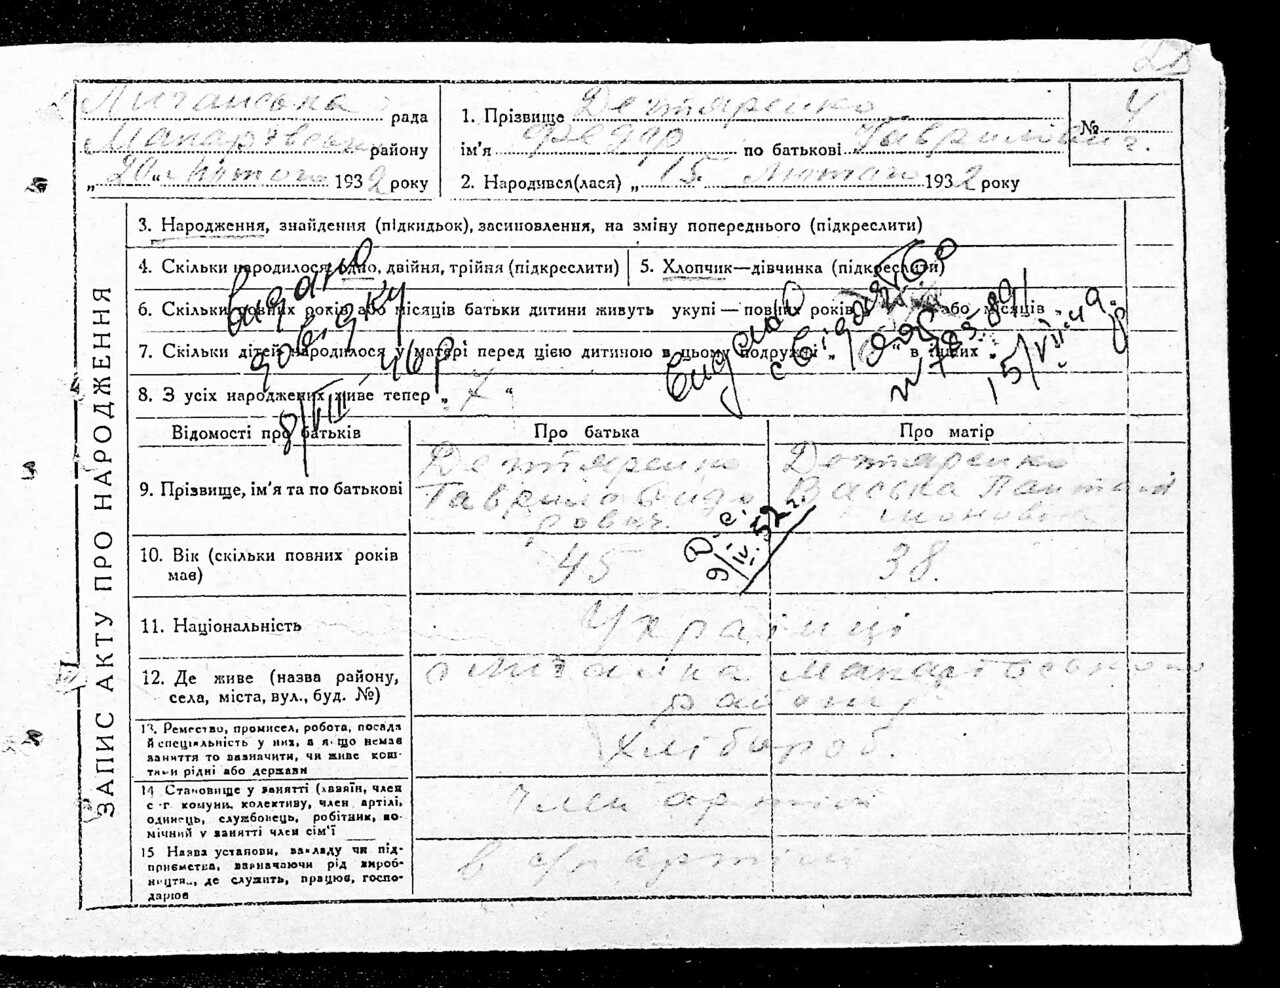 Личанська рада
Макарівськ району
„ 20 “ Лютого 1932 року
1. Прізвище Дехтяренко
ім'я Федір по батькові Гаврилович
№ 4
2. Народився(лася) „ 15 Лютого 1932 року
ЗАПИС АКТУ ПРО НАРОДЖЕННЯ
3. Народження, знайдення (підкидьок), засиновлення, на зміну попереднього (підкреслити)
4. Скільки народилося: одно, двійня, трійня (підкреслити)
5. Хлопчик—дівчинка (підкреслити)
6. Скільки повних років або місяців батьки дитини живуть укупі — повних років або місяців „
7. Скільки дітей народилося у матері перед цією дитиною в цьому подружжі „ “ в інших „
8. З усіх народжених живе тепер „ 7 “
Видано
довідку
8/VIII 46 р
Видано
свідоцтво
№ 783 891
15/VII-49 р
Відомості про батьків
Про батька
Про матір
9. Прізвище, ім'я та по батькові
Дехтяренко
Гаврило
Дехтяренко
Васька
9/IV. 52 г.
10. Вік (скільки повних років має)
45
38.
11. Національність
Українці
12. Де живе (назва району,
села, міста, вул., буд. №)
Макарівського
району
13. Ремество, промисел, робота, посада
й спеціяльність у них, а якщо немає
заняття то зазначити, чи живе кош-
тами рідні або держави
Хлібороб.
14 Становище у занятті (хазяїн, член
с-г комуни, колективу, член артілі,
одинець, службовець, робітник, по-
мічний у занятті член сім'ї
Член артілі
15 Назва установи, закладу чи під-
приємства, зазначаючи рід вироб-
ництва, де служить, працює, госпо-
дарює
в с/г артілі